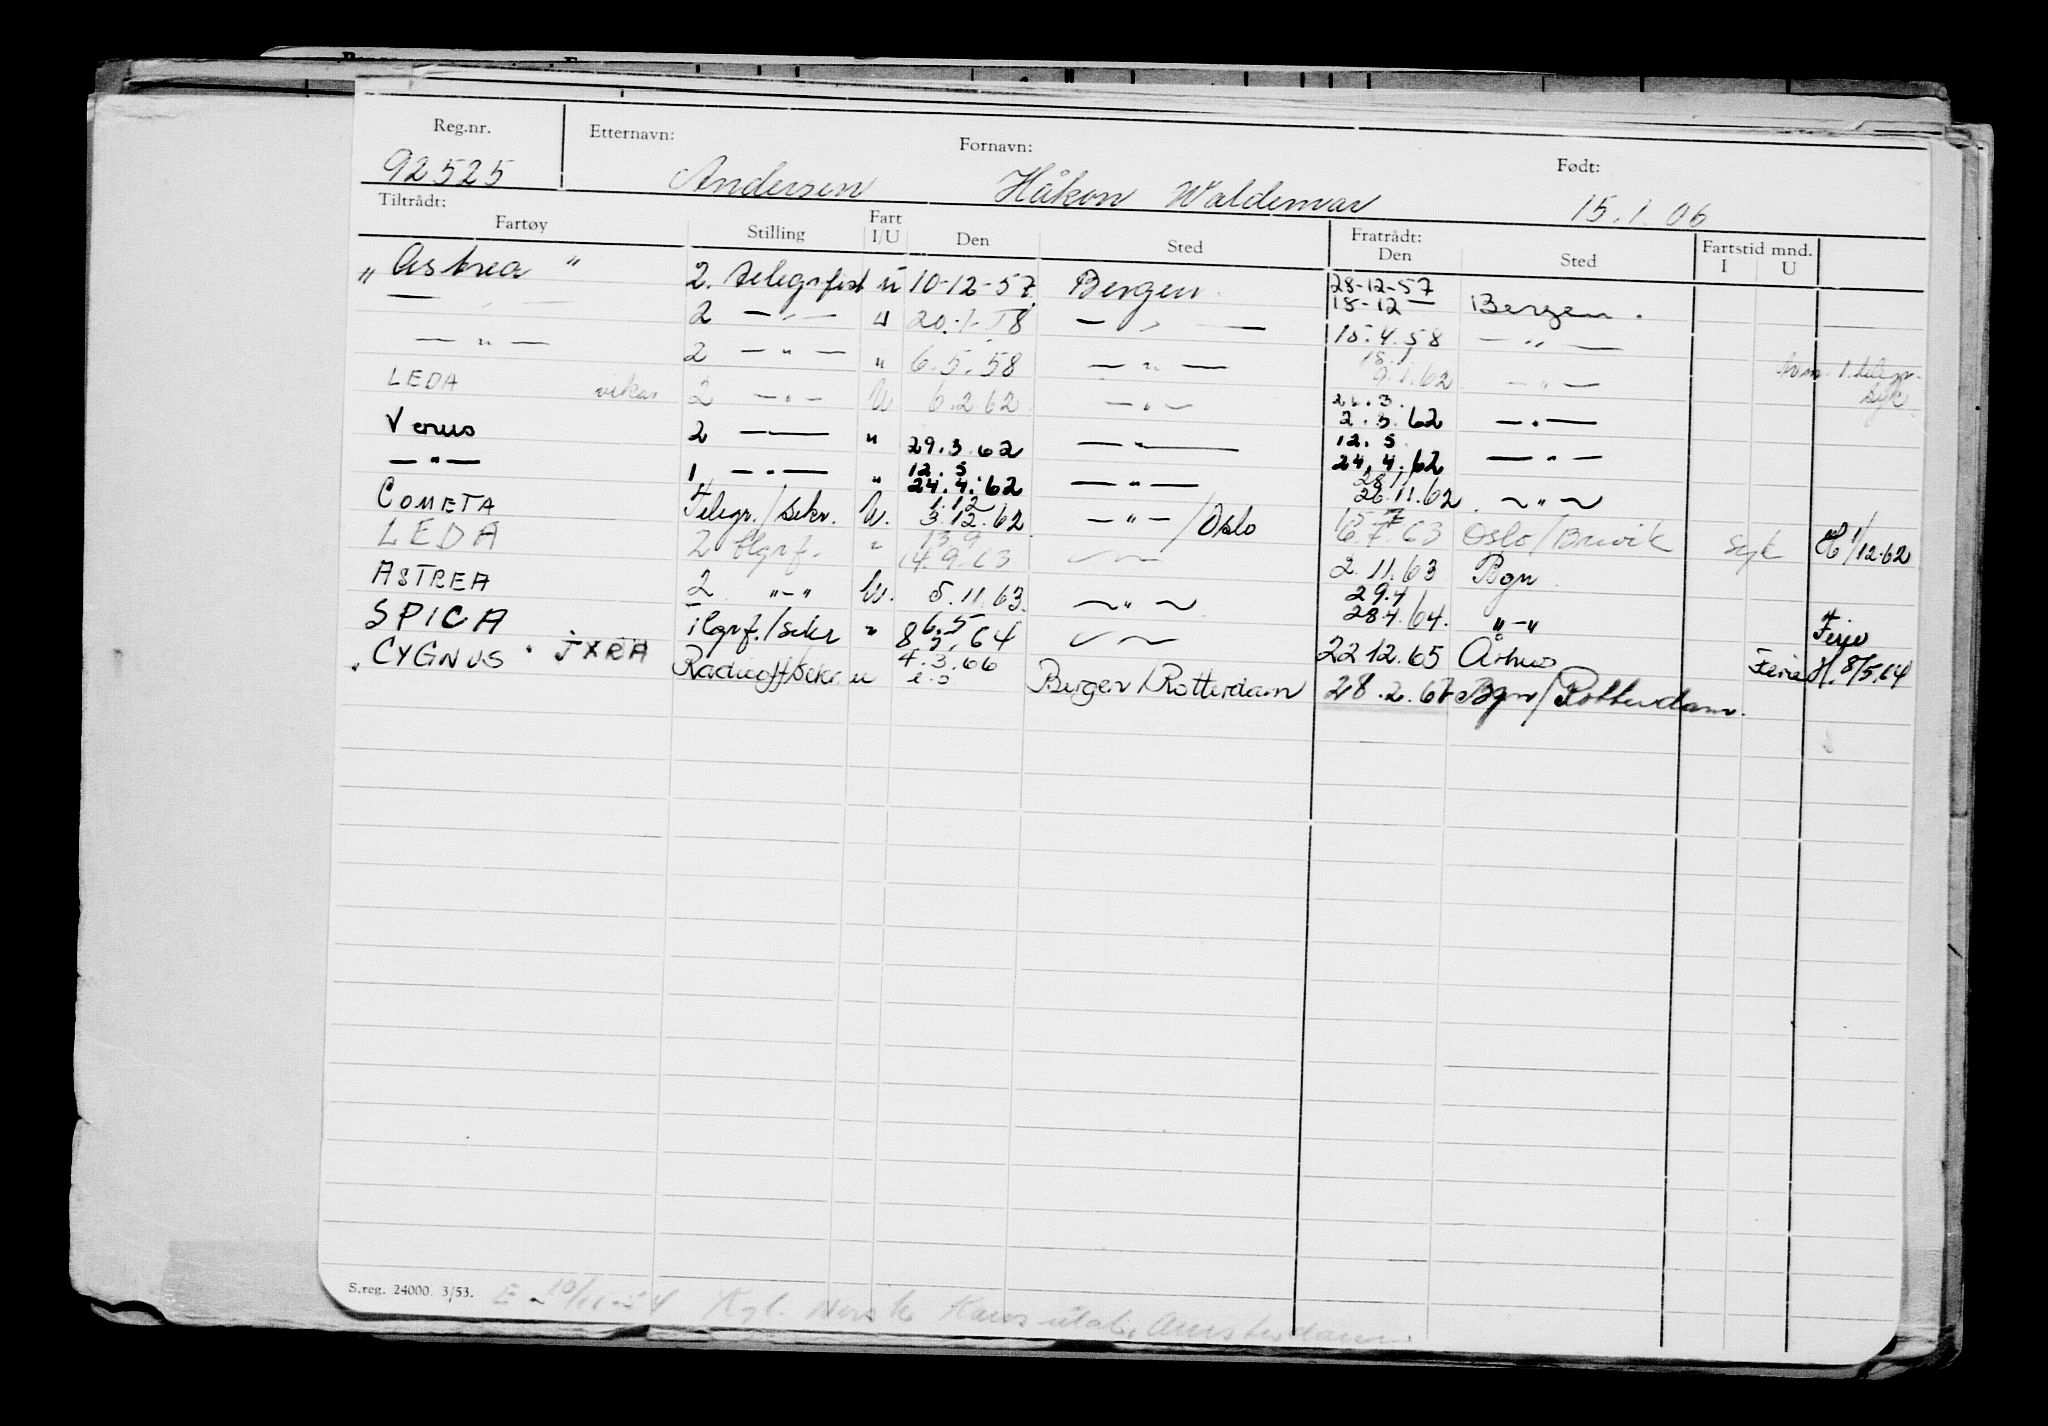 Reg.nr. Etternavn: Fornavn: Født:
92525 Andersen Håkon Waldemar 15.1.06
Tiltrådt: Fartøy Stilling Fart I/U Den Sted Fratrådt: Den Sted Fartstid mnd. I U
„ Astrea " 2. telegrfist u 10-12-57 Bergen 28-12-57
— „ — 2 — „ — u 20.1.58 — „ — 18-12 — Bergen.
— „ — 2 — „ — " 6.5.58 — „ — 15.4.58 — „ —
LEDA vikar 2 — „ — U 6.2.62 — „ — 18.1. 9.1.62 — „ — 1. telegr. syk
Venus 2 — — " 29.3.62 — " — 2.3.62 — „ —
— " — 1 — „ — " 12.5 24.4.62 — " — 12.5 24.4.62 — „ —
COMETA Telegr./Sekr. U. 1.12 3.12.62 — " — / Oslo 28.11 26.11.62 ~ " ~
LEDA 2 tlgrf. " 13.9 14.9.63 — — 6.7.63 Oslo/Brevik Syk H 1/12-62
ASTREA 2 "-" U. 5.11.63 ~ " ~ 2.11.63 Bgn
SPICA Tlgrf./Sekr " 6.5 64 — — 29.4 28.4/64. "-" Ferie
„ CYGNUS " JXRA Radiooff/Sekr. u 4.3.66 Bergen/Rotterdam 22 12.65 Århus Ferie H. 8/5.64
28.2.67 Bgn/Rotterdam.
S.reg. 24000. 3/53. E - 10/11-54 Kgl. Norske Konsulat, Amsterdam.